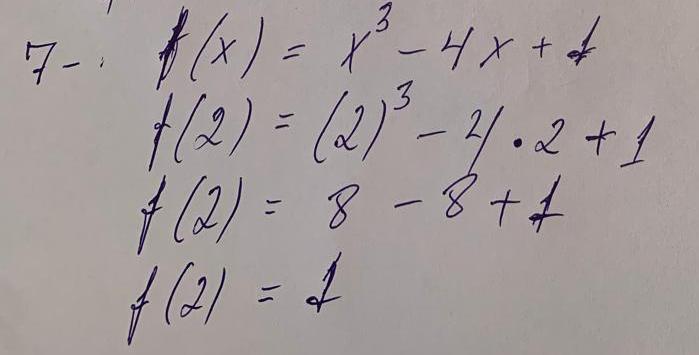 7-. f(x) = x³ - 4x + 1
f(2) = (2)³ - 4 · 2 + 1
f(2) = 8 - 8 + 1
f(2) = 1